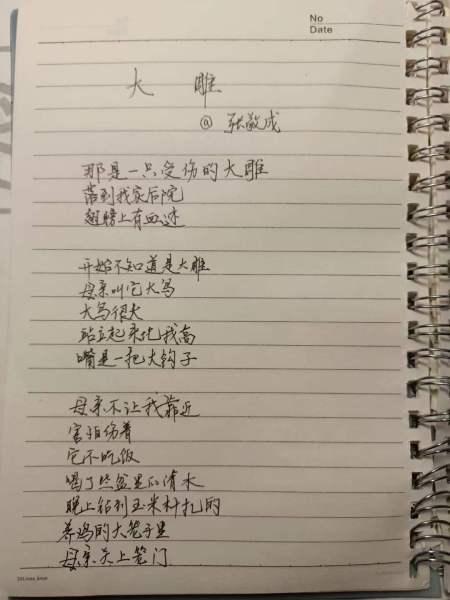 No
Date
大 雕
@ 张敬成
那是一只受伤的大雕
落到我家后院
翅膀上有血迹
开始不知道是大雕
母亲叫它大鸟
大鸟很大
站立起来比我高
嘴是一把大钩子
母亲不让我靠近
害怕伤着
它不吃饭
喝了些盆里的清水
晚上钻到玉米杆扎的
养鸡的大笼子里
母亲关上笼门